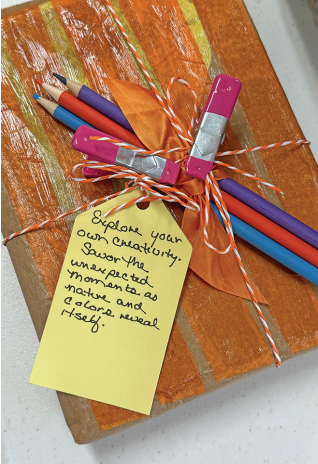 Explore your
own creativity.
Savor the
unexpected
moments as
nature and
colors reveal
itself.